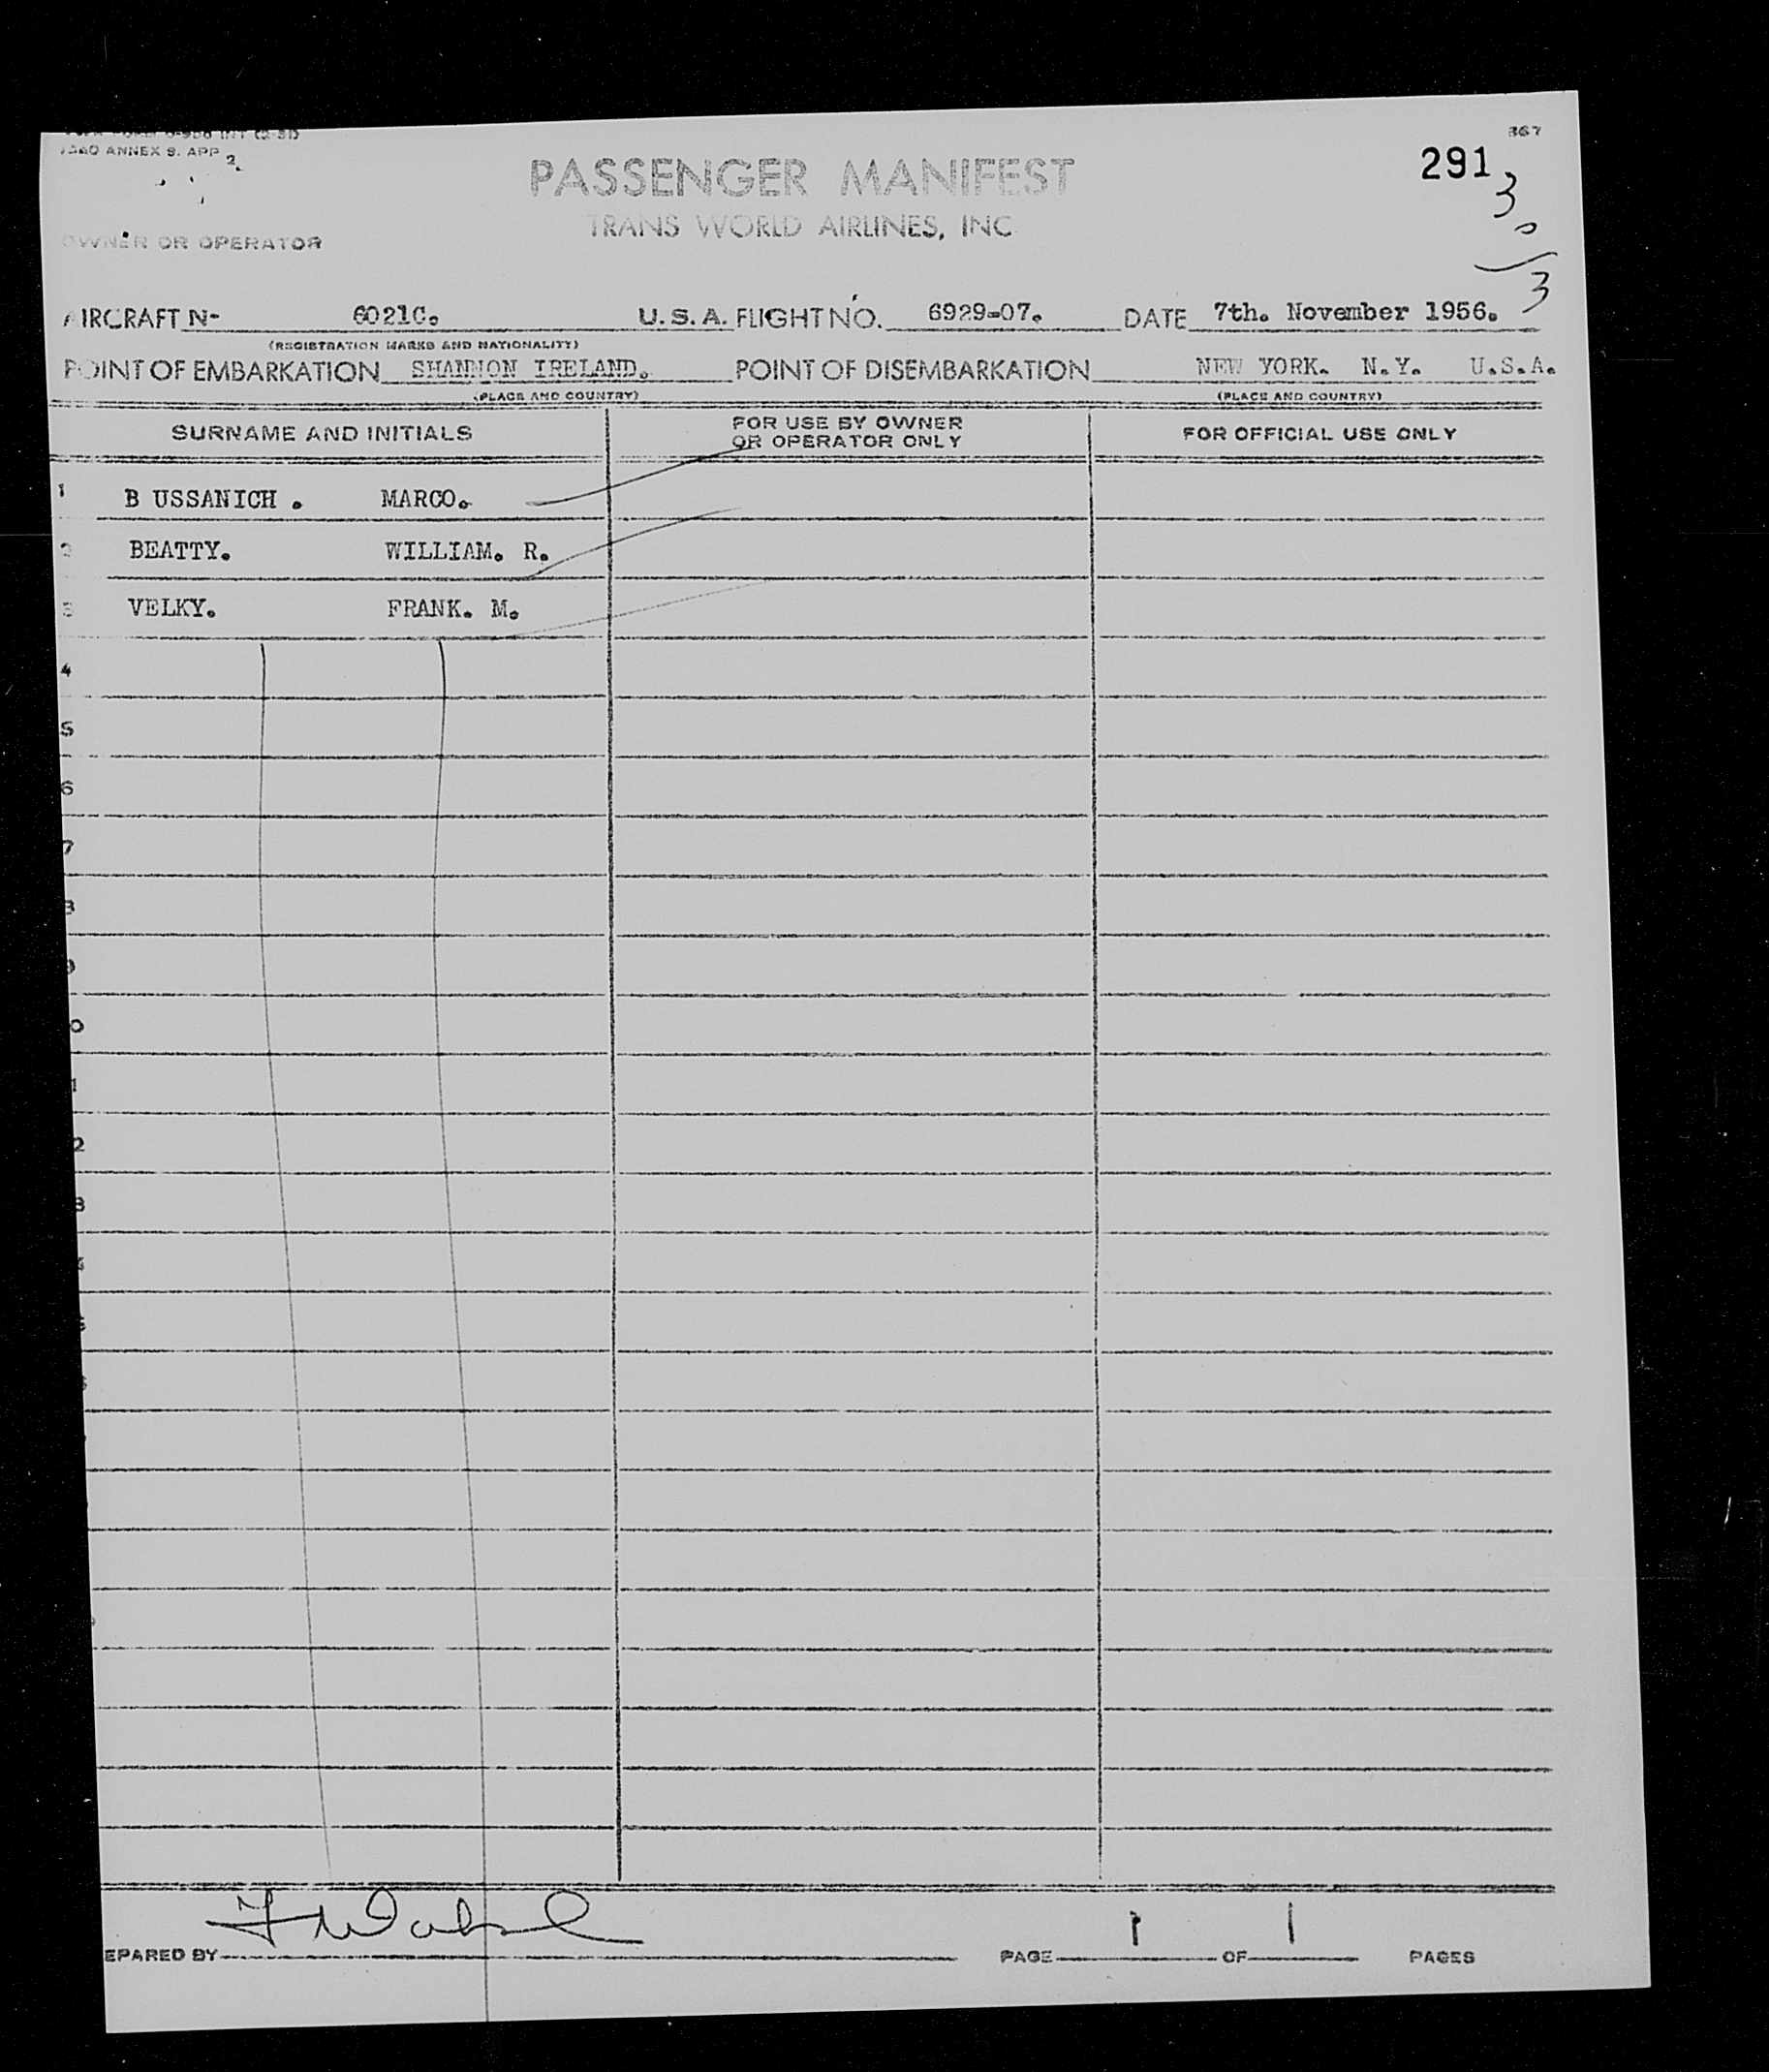 367
ANNEX 9. APP 2
291
PASSENGER MANIFEST
3
TRANS WORLD AIRLINES, INC
0
OWNER OR OPERATOR
3
AIRCRAFT N- 6021C. U.S.A. FLIGHT NO. 6929-07. DATE 7th. November 1956.
(REGISTRATION MARKS AND NATIONALITY)
POINT OF EMBARKATION SHANNON IRELAND. POINT OF DISEMBARKATION NEW YORK. N.Y. U.S.A.
(PLACE AND COUNTRY) (PLACE AND COUNTRY)
SURNAME AND INITIALS FOR USE BY OWNER OR OPERATOR ONLY FOR OFFICIAL USE ONLY
1 B USSANICH . MARCO.
2 BEATTY. WILLIAM. R.
3 VELKY. FRANK. M.
4
5
6
7
8
9
0
1
2
3
EPARED BY PAGE 1 OF 1 PAGES